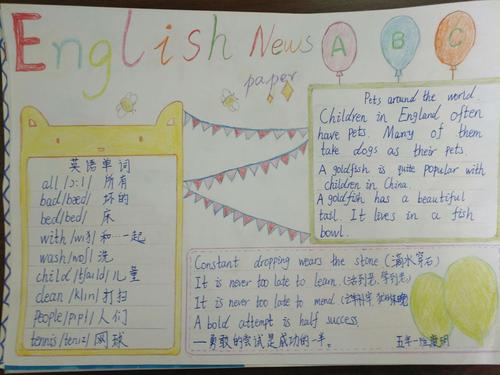 English News
paper
A B C
英语单词
all /ɔːl/ 所有
bad/bæd/ 坏的
bed/bed/ 床
with/wɪð/和…一起
wash/wɒʃ/洗
child/tʃaɪld/儿童
clean/klin/打扫
people/pipl/人们
tennis/tenɪz/网球
Pets around the world.
Children in England often
have pets. Many of them
take dogs as their pets.
A goldfish is quite popular with
children in China.
A goldfish has a beautiful
tail. It lives in a fish
bowl.
Constant dropping wears the stone (滴水穿石)
It is never too late to learn. (活到老,学到老)
It is never too late to mend.
A bold attempt is half success.
一勇敢的尝试是成功的一半。
五年一班